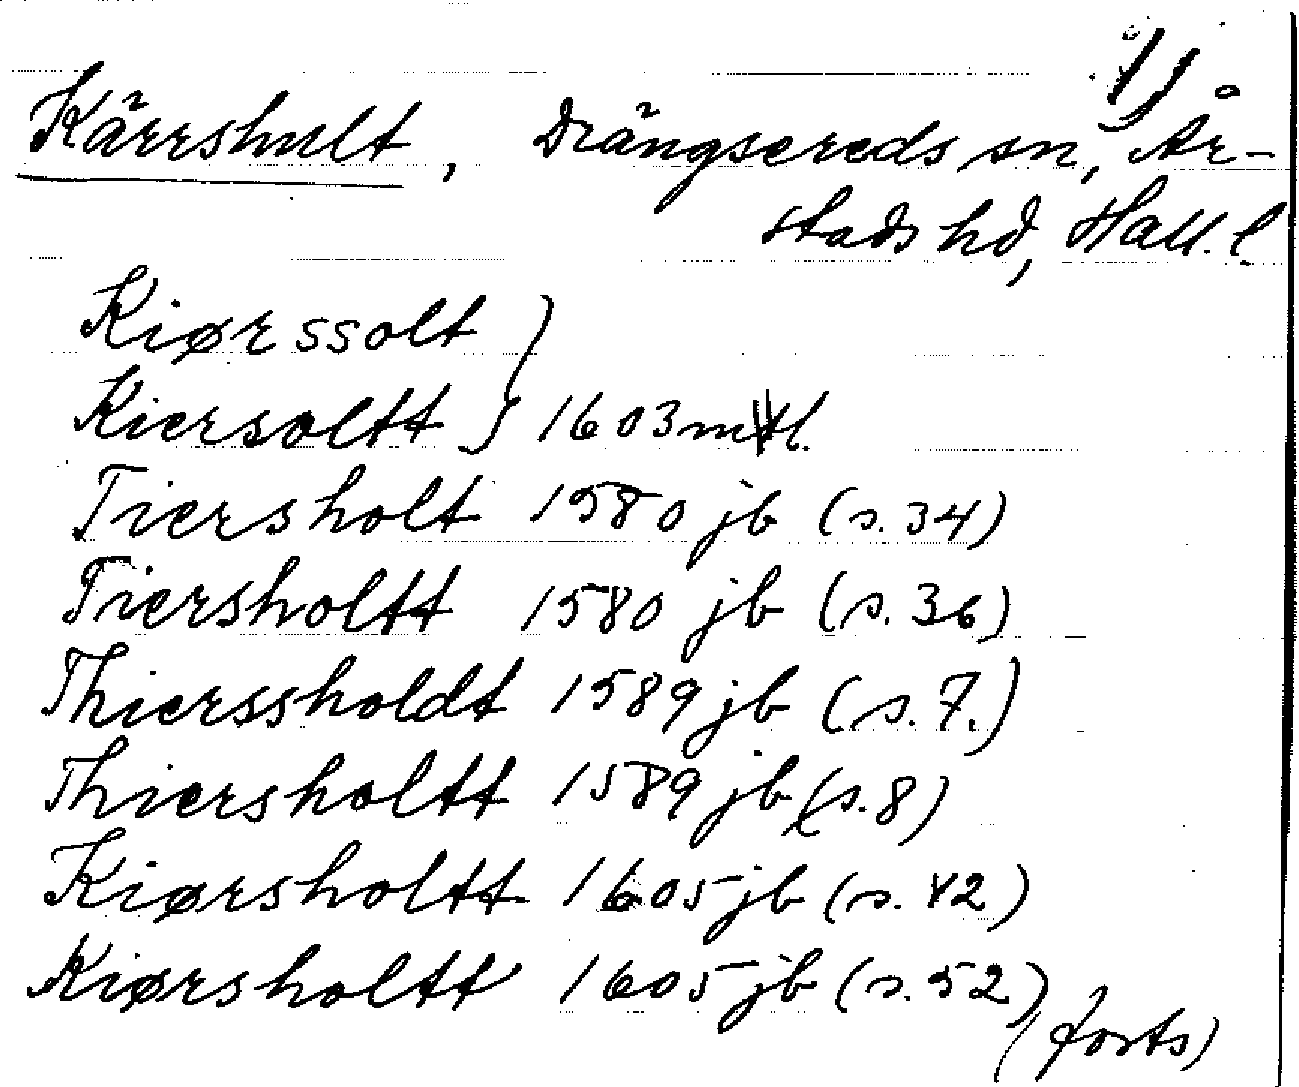 1)
Kärrshult, Drängsereds sn, År-
stads hd, Hall. l.
Kiørssolt }
Kiersoltt } 1603 mtl.
Tiersholt 1580 jb (s. 34)
Tiersholtt 1580 jb (s. 36)
Thierssholdt 1589 jb (s. 7.)
Thiersholtt 1589 jb (s. 8)
Kiørsholtt 1605 jb (s. 42)
Kiørsholtt 1605 jb (s. 52)
(forts)